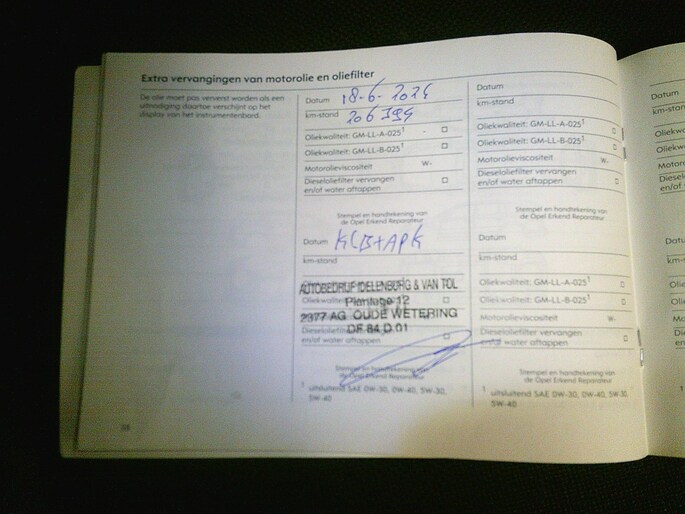 Extra vervangingen van motorolie en oliefilter
De olie moet pas ververst worden als een
uitnodiging daartoe verschijnt op het
display van het instrumentenbord.
Datum 18-6-2024
km-stand
Oliekwaliteit: GM-LL-A-025¹ - □
Oliekwaliteit: GM-LL-B-025¹ □
Motorolieviscositeit W-
Dieseloliefilter vervangen
en/of water aftappen □
Stempel en handtekening van
de Opel Erkend Reparateur
Datum KLB+APK
km-stand
AUTOBEDRIJF IDELENBURG & VAN TOL
Oliekwaliteit
Plantage 12
2377 AG OUDE WETERING
DF 84 D 01
en/of water aftappen □
Stempel en handtekening van
de Opel Erkend Reparateur
¹ uitsluitend SAE 0W-30, 0W-40, 5W-30,
5W-40
Datum
km-stand
Oliekwaliteit: GM-LL-A-025¹ □
Oliekwaliteit: GM-LL-B-025¹ □
Motorolieviscositeit W-
Dieseloliefilter vervangen
en/of water aftappen □
Stempel en handtekening van
de Opel Erkend Reparateur
Datum
km-stand
Oliekwaliteit: GM-LL-A-025¹ □
Oliekwaliteit: GM-LL-B-025¹ □
Motorolieviscositeit W-
Dieseloliefilter vervangen
en/of water aftappen □
Stempel en handtekening van
de Opel Erkend Reparateur
¹ uitsluitend SAE 0W-30, 0W-40, 5W-30,
5W-40
38
Datum
km-stand
Datum
km-stand